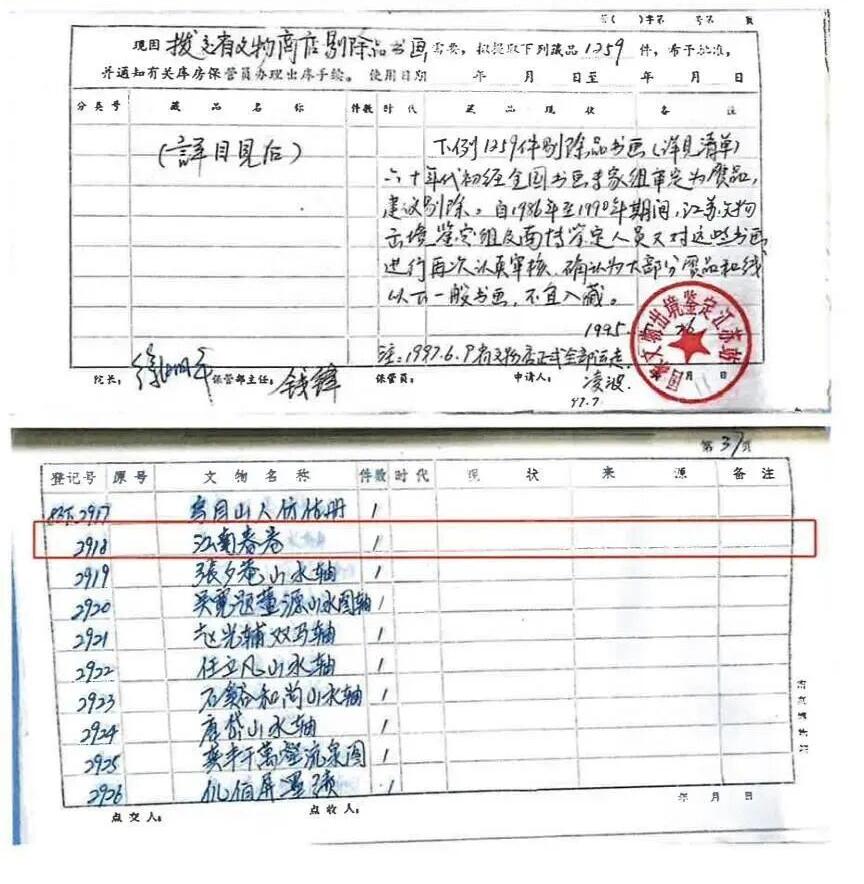 第( )字第 号第 页
现因 拨交省文物商店剔除品书画 需要，拟提取下列藏品 1259 件，希予批准，
并通知有关库房保管员办理出库手续。 使用日期 年 月 日至 年 月 日
分类号 藏品名称 件数 时代 藏品现状 备注
（詳目見后）
下例1259件剔除品书画(详见清单)
六十年代初经全国书画专家组审定为赝品，
建议剔除。自1986年至1990年期间，江苏文物
出境鉴定组及
鉴定人员又对这些书画
进行再次认真审核，确认为大部分赝品和线
以云一般书画，不宜入藏。
1995. 5. 26
注：1997.6.9省文物店正式全部运走
院长： 徐湖平 保管部主任： 钱锋 保管员： 申请人： 凌波
97.7.
国家文物出境鉴定江苏站
年 月 日
第 37 页
登记号 原号 文物名称 件数 时代 现状 来源 备注
2917 1
2918 江南春卷 1
2919 張夕庵山水轴 1
2920 吴寬題董源山水图轴 1
2921 赵光辅双马轴 1
2922 任立凡山水轴 1
2923 石谿和尚山水轴 1
2924 唐岱山水轴 1
2925 萬壑流泉图 1
2926 1
点交人： 点收人： 年 月 日